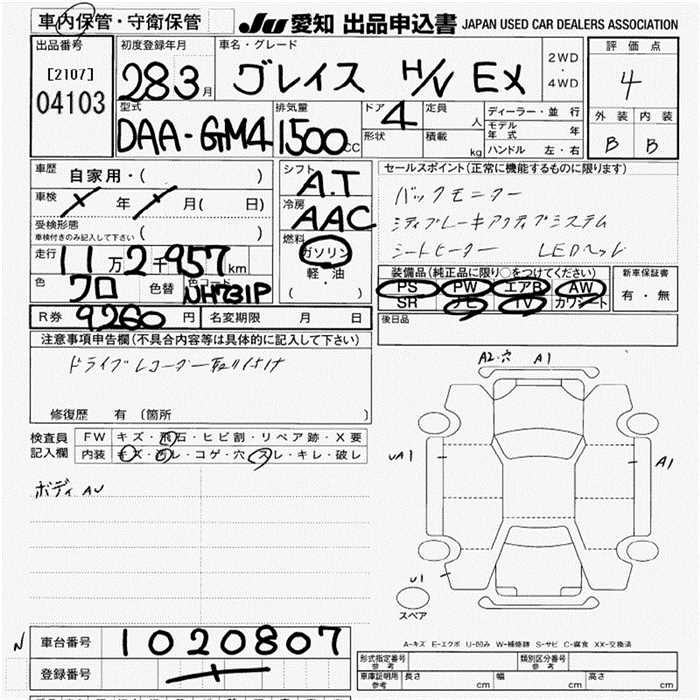 車内保管・守衛保管 JU 愛知 出品申込書 JAPAN USED CAR DEALERS ASSOCIATION
出品番号 初度登録年月 車名・グレード 評価点
[2107] 04103 28 3月 グレイス H/V EX 2WD・4WD 4
型式 排気量 ドア 定員 ディーラー・並行 外装 内装
DAA-GM4 1500cc 4 人 モデル年式 年 B B
形状 積載 kg ハンドル 左・右
車歴 自家用・( ) シフト A.T セールスポイント(正常に機能するものに限ります)
車検 年 月( 日) 冷房 AAC バックモニター
受検形態 シティブレーキアクティブシステム
車検付きのみ記入して下さい ( ) 燃料 ガソリン シートヒーター LEDヘッド
走行 11万2千957km 軽・油 装備品(純正品に限り○をつけてください) 新車保証書
色 クロ 色替 色コード NH731P ( ) PS PW エアB AW 有・無
SR ナビ TV カワシート
R券 9260円 名変期限 月 日 後日品
注意事項申告欄(不具合内容等は具体的に記入して下さい)
ドライブレコーダー取り付け
修復歴 有 (箇所 )
検査員記入欄 FW キズ・飛石・ヒビ割・リペア跡・X要
内装 キズ・汚レ・コゲ・穴・スレ・キレ・破レ
ボディ AU
A2・穴 A1
UA1 A1
U1
スペア
A-キズ E-エクボ U-凹み W-補修跡 S-サビ C-腐食 XX-交換済
車台番号 1020807
登録番号
形式指定番号 参考 類別区分番号 参考
車庫証明用 参考 長さ cm 幅 cm 高さ cm